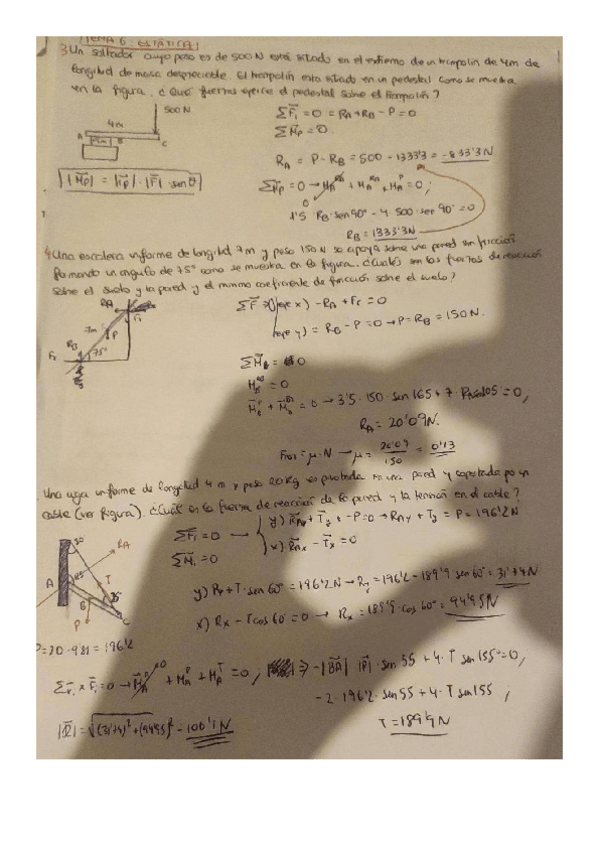 TEMA 6: ESTÁTICA
3. Un saltador cuyo peso es de 500 N está situado en el extremo de un trampolín de 4m de
longitud de masa despreciable. El trampolín esta situado en un pedestal como se muestra
en la figura. ¿Qué fuerzas ejerce el pedestal sobre el trampolín?
500 N
4m
A B C
ΣF = 0 = RA + RB - P = 0
ΣM = 0
RA = P - RB = 500 - 1333'3 = -833'3N
|M| = |r|·|F|·senθ
1'5 · RB · sen 90° - 4 · 500 · sen 90° = 0
RB = 1333'3N
4. Una escalera uniforme de longitud 7m y peso 150 N se apoya sobre una pared sin fricción
formando un angulo de 75° como se muestra en la figura. ¿Cuáles son las fuerzas de reacción
sobre el suelo y la pared y el minimo coeficiente de fricción sobre el suelo?
RA
7m
P
RB
75°
eje x) - RA + Fr = 0
eje y) = RB - P = 0 → P = RB = 150 N.
ΣMB = 0
= 0 → 3'5 · 150 · sen 165 + 7 · RA = 0,
RA = 20'09N.
= μ · N → μ = 20'09/150 = 0'13
Una viga uniforme de longitud 4 m y peso 20 Kg es pivotada en una pared y soportada por un
cable (ver figura). ¿Cuál es la fuerza de reacción de la pared y la tensión en el cable?
30°
RA
A
T
B
P
C
ΣF = 0 → y) RAy + Ty - P = 0 → RAy + Ty = P = 196'2N
ΣM = 0
x) RAx - Tx = 0
y) Ry + T · sen 60° = 196'2N → Ry = 196'2 - 189'9 sen 60° = 31'74N
x) Rx - T cos 60 = 0 → Rx = 189'9 · cos 60° = 94'95N
P = 20 · 9'81 = 196'2
= 0; ⇒ -|BA| |P| · sen 55 + 4 · T sen 155° = 0,
- 2 · 196'2 · sen 55 + 4 · T sen 155,
|R| = √(31'74)² + (94'95)² = 100'1N
T = 189'9N